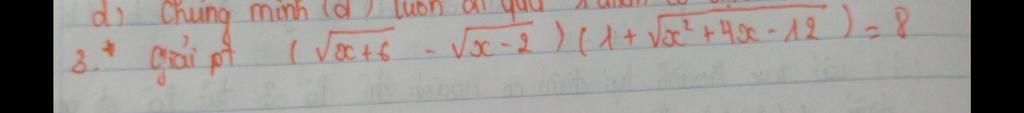 d) Chứng minh (d) luôn đi qua
3.* giải pt (√x+6 - √x-2) (1 + √x²+4x-12) = 8